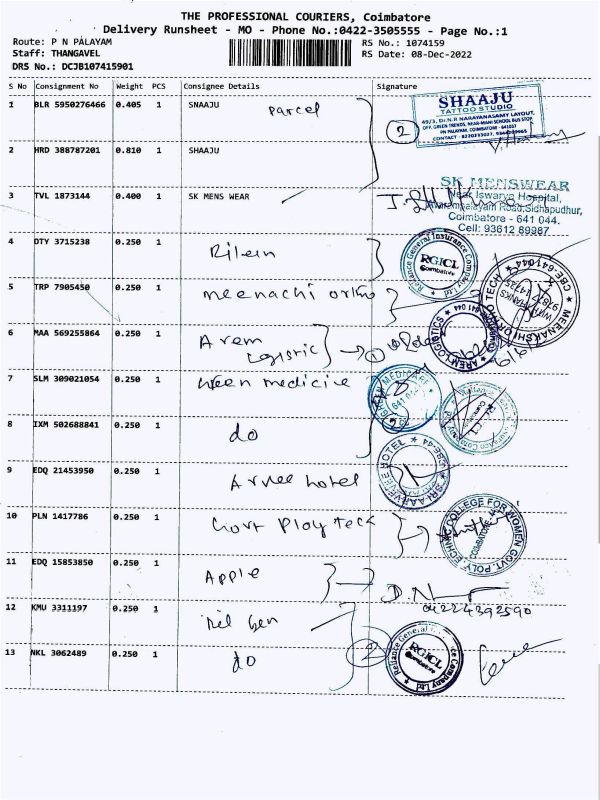 THE PROFESSIONAL COURIERS, Coimbatore
Delivery Runsheet - MO - Phone No.:0422-3505555 - Page No.:1
Route: P N PALAYAM
Staff: THANGAVEL
DRS No.: DCJB107415901
RS No.: 1074159
RS Date: 08-Dec-2022
S No Consignment No Weight PCS Consignee Details Signature
1 BLR 5950276466 0.405 1 SNAAJU parcel
2
SHAAJU
TATTOO STUDIO
49/3, Dr.N.R NARAYANASAMY LAYOUT,
OFF. GREEN TRENDS, NEAR-MANI SCHOOL BUS STOP,
PN PALAYAM, COIMBATORE - 641037
2 HRD 388787201 0.810 1 SHAAJU
3 TVL 1873144 0.400 1 SK MENS WEAR
SK MENSWEAR
Near Iswarya Hospital,
Road, Sidhapudhur,
Coimbatore - 641 044.
Cell: 93612 89987
4 DTY 3715238 0.250 1
Reliance General Insurance Company Ltd
RGICL
Coimbatore
5 TRP 7905450 0.250 1 meenachi ortho
MEENAKSHI ORTHO TECH
CBE-641044
WITH THANKS
6 MAA 569255864 0.250 1 Arem
Logistic 1
AREM LOGISTICS
7 SLM 309021054 0.250 1 medicine
8 IXM 502688841 0.250 1 do
9 EDQ 21453950 0.250 1 Arvee hotel
SRI AARVEE HOTEL
CBE-44
10 PLN 1417786 0.250 1 Govt Play teck
POLYTECHNIC COLLEGE FOR WOMEN
GOVT.
COIMBATORE
11 EDQ 15853850 0.250 1 Apple
04224392590
12 KMU 3311197 0.250 1
13 NKL 3062489 0.250 1 do
2
Reliance General
Company Ltd
RGICL
Coimbatore